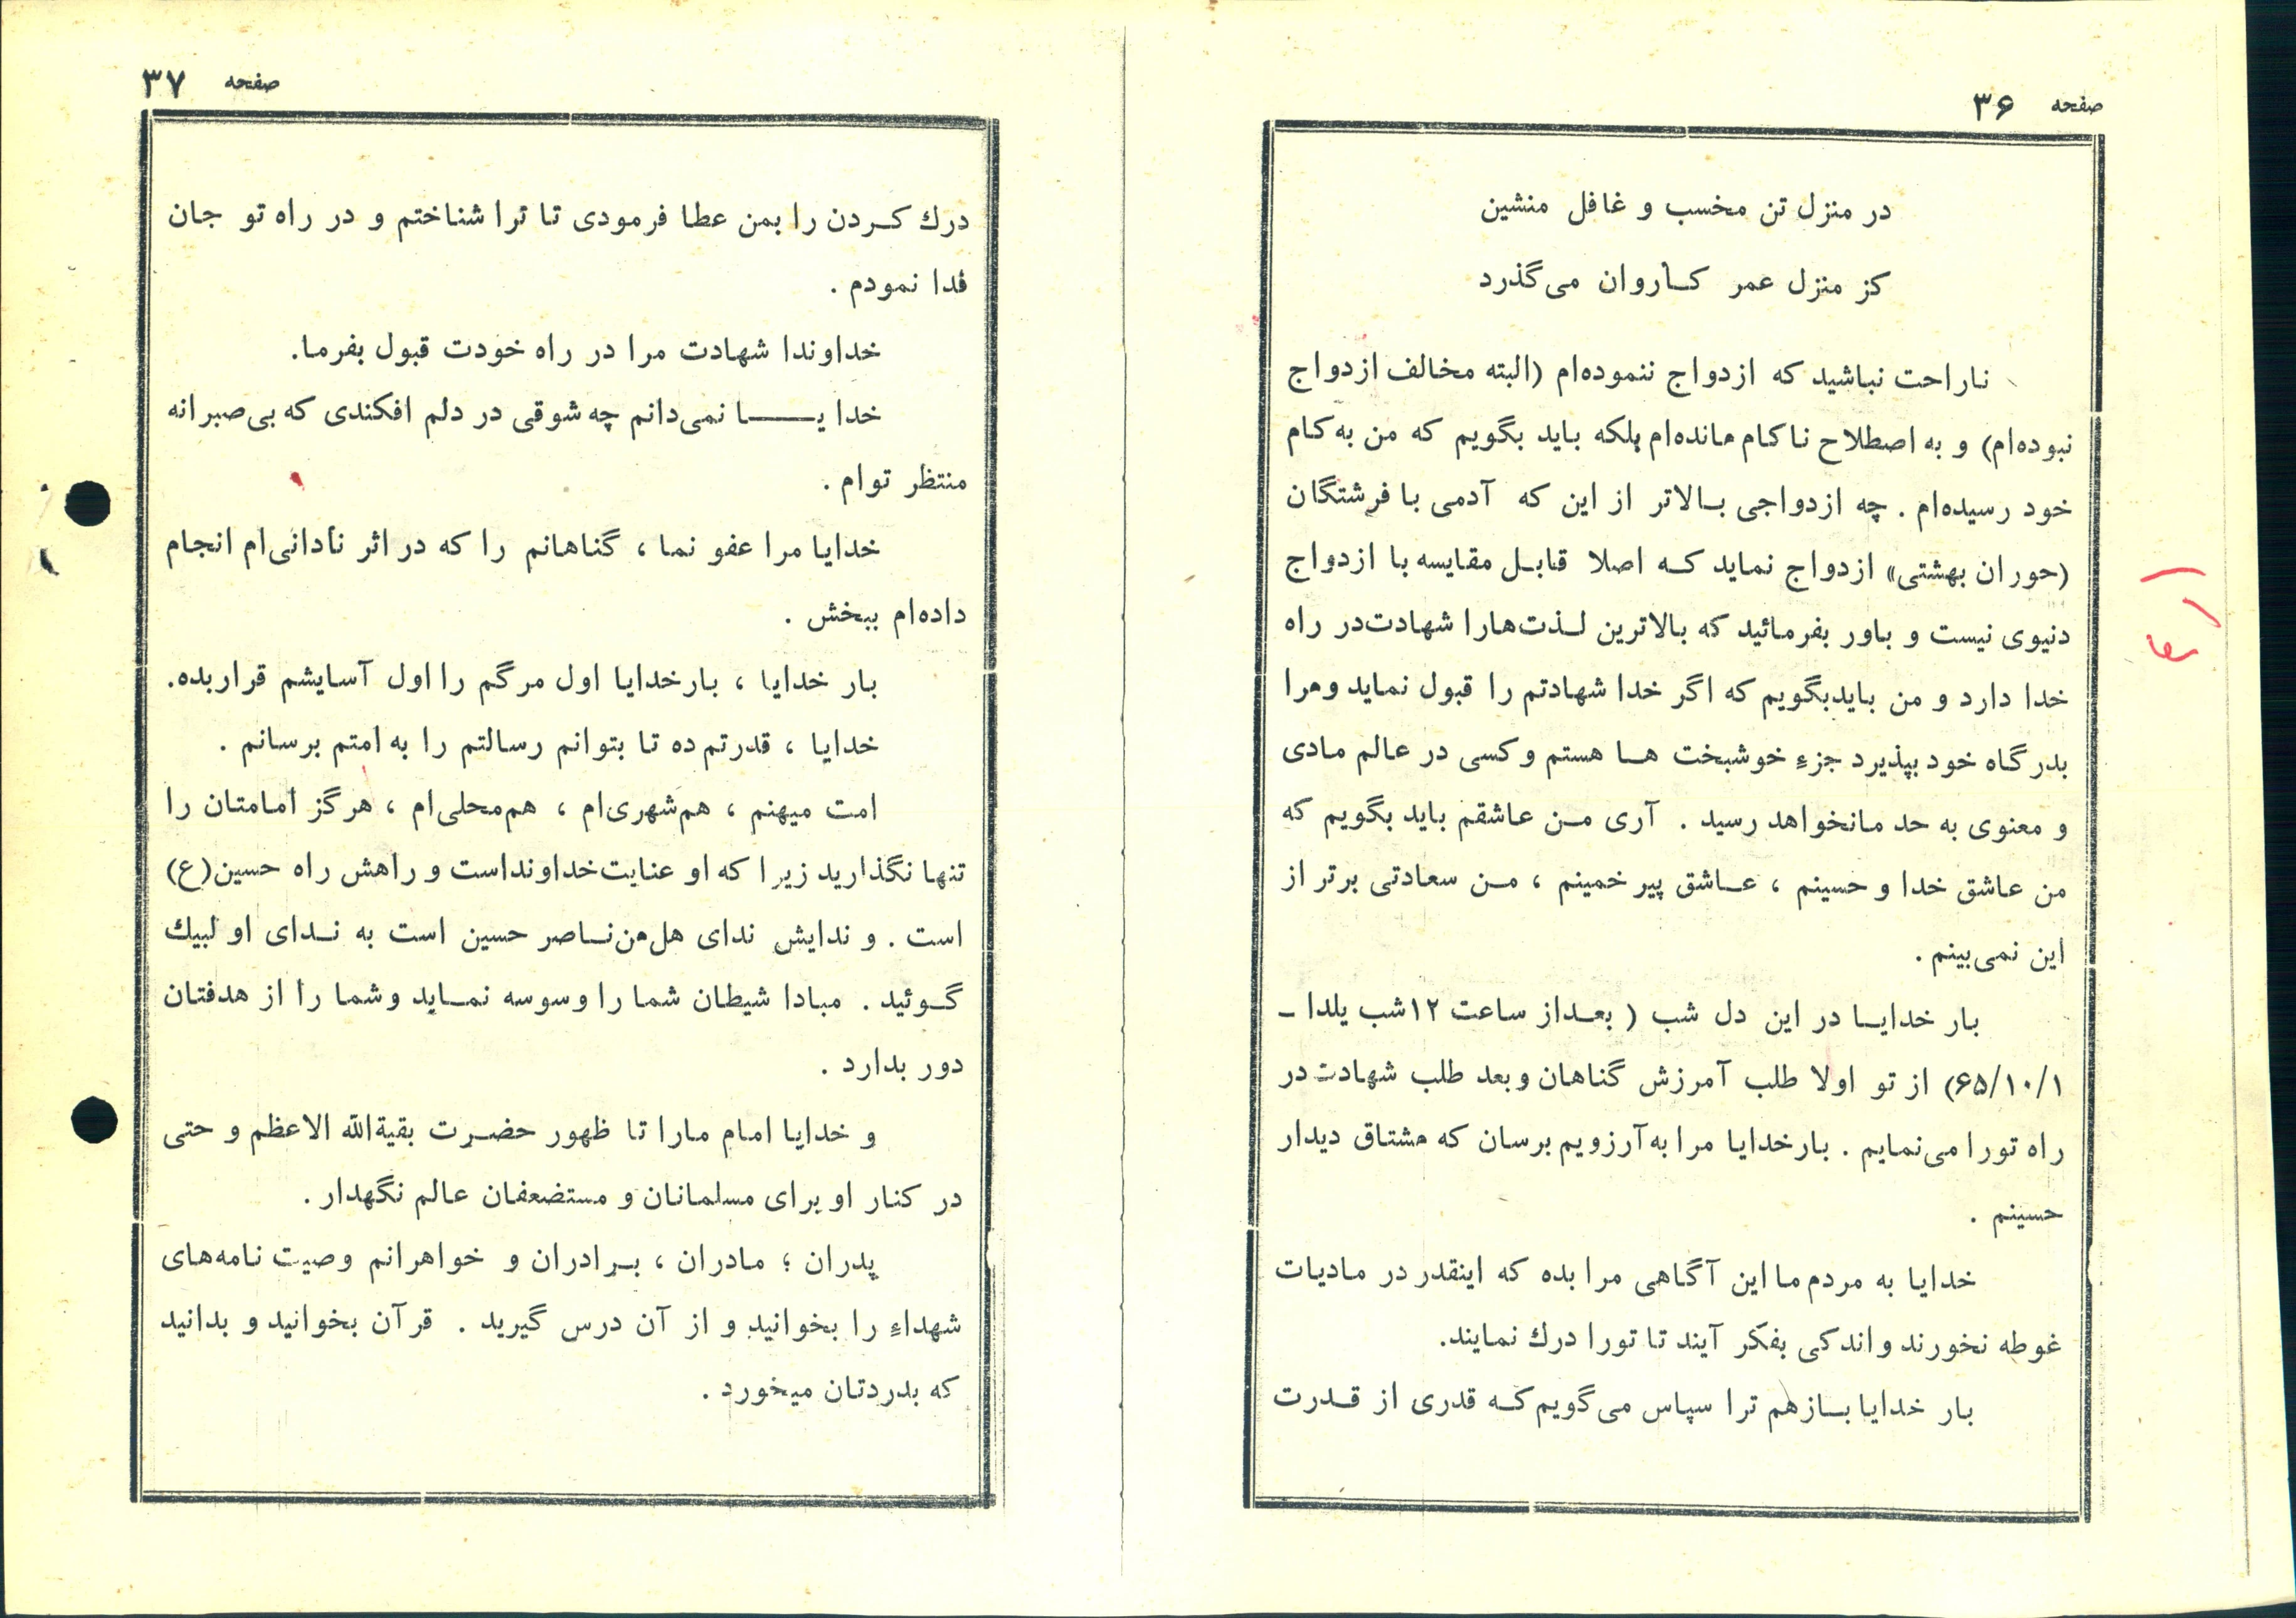 صفحه ۳۶
در منزل تن مخسب و غافل منشین
کز منزل عمر کاروان می‌گذرد
ناراحت نباشید که ازدواج ننموده‌ام (البته مخالف ازدواج
نبوده‌ام) و به اصطلاح ناکام مانده‌ام بلکه باید بگویم که من به کام
خود رسیده‌ام . چه ازدواجی بالاتر از این که آدمی با فرشتگان
(حوران بهشتی» ازدواج نماید که اصلا قابل مقایسه با ازدواج
دنیوی نیست و باور بفرمائید که بالاترین لذت‌هارا شهادت‌در راه
خدا دارد و من بایدبگویم که اگر خدا شهادتم را قبول نماید ومرا
بدرگاه خود بپذیرد جزء خوشبخت ها هستم وکسی در عالم مادی
و معنوی به حد مانخواهد رسید . آری من عاشقم باید بگویم که
من عاشق خدا و حسینم ، عاشق پیر خمینم ، من سعادتی برتر از
این نمی‌بینم .
بار خدایا در این دل شب ( بعداز ساعت ۱۲شب یلدا ـ
۶۵/۱۰/۱) از تو اولا طلب آمرزش گناهان وبعد طلب شهادت در
راه تورا می‌نمایم . بارخدایا مرا به‌آرزویم برسان که مشتاق دیدار
حسینم .
خدایا به مردم ما این آگاهی مرا بده که اینقدر در مادیات
غوطه نخورند واندکی بفکر آیند تا تورا درك نمایند.
بار خدایا بازهم ترا سپاس می‌گویم که قدری از قدرت
صفحه ۳۷
درك کردن را بمن عطا فرمودی تا ترا شناختم و در راه تو جان
فدا نمودم .
خداوندا شهادت مرا در راه خودت قبول بفرما.
خدایــــا نمی‌دانم چه شوقی در دلم افکندی که بی‌صبرانه
منتظر توام .
خدایا مرا عفو نما ، گناهانم را که در اثر نادانی‌ام انجام
داده‌ام ببخش .
بار خدایا ، بارخدایا اول مرگم را اول آسایشم قراربده.
خدایا ، قدرتم ده تا بتوانم رسالتم را به امتم برسانم .
امت میهنم ، هم‌شهری‌ام ، هم‌محلی‌ام ، هرگز امامتان را
تنها نگذارید زیرا که او عنایت‌خداونداست و راهش راه حسین(ع)
است . و ندایش ندای هل‌من‌ناصر حسین است به ندای او لبیك
گوئید . مبادا شیطان شما را وسوسه نماید وشما را از هدفتان
دور بدارد .
و خدایا امام مارا تا ظهور حضرت بقیةالله الاعظم و حتی
در کنار او برای مسلمانان و مستضعفان عالم نگهدار .
پدران ؛ مادران ، برادران و خواهرانم وصیت نامه‌های
شهداء را بخوانید و از آن درس گیرید . قرآن بخوانید و بدانید
که بدردتان میخورد .